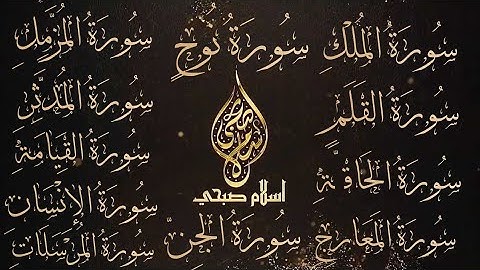 سُورَةُ المُلْكِ
سُورَةُ القَلَمِ
سُورَةُ الحَاقَّةِ
سُورَةُ المَعَارِجِ
سُورَةُ نُوحٍ
اسلام صبحي
سُورَةُ الجِنِّ
سُورَةُ المُزَّمِّلِ
سُورَةُ المُدَّثِّرِ
سُورَةُ القِيَامَةِ
سُورَةُ الإِنْسَانِ
سُورَةُ المُرْسَلَاتِ